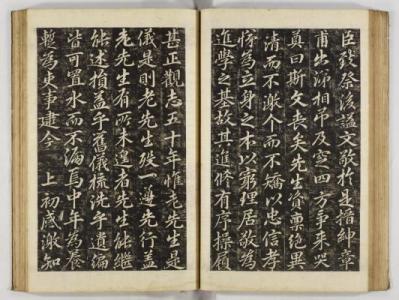 臣致祭後諡文敬於是搢紳章
甫出涕相弔及窆四方爭來哭
奠曰斯文喪矣先生資稟絕異
清而不激介而不矯以忠信孝
悌為立身之本以窮理居敬為
進學之基故其進修有序操履
甚正觀志五十年惟老先生是
儀是則老先生殁一遵先行蓋
老先生有所未遑者先生能繼
能述損益乎舊儀梳洗乎遺編
皆可置水而不漏焉中年為養
暫為吏事建今 上初感激知